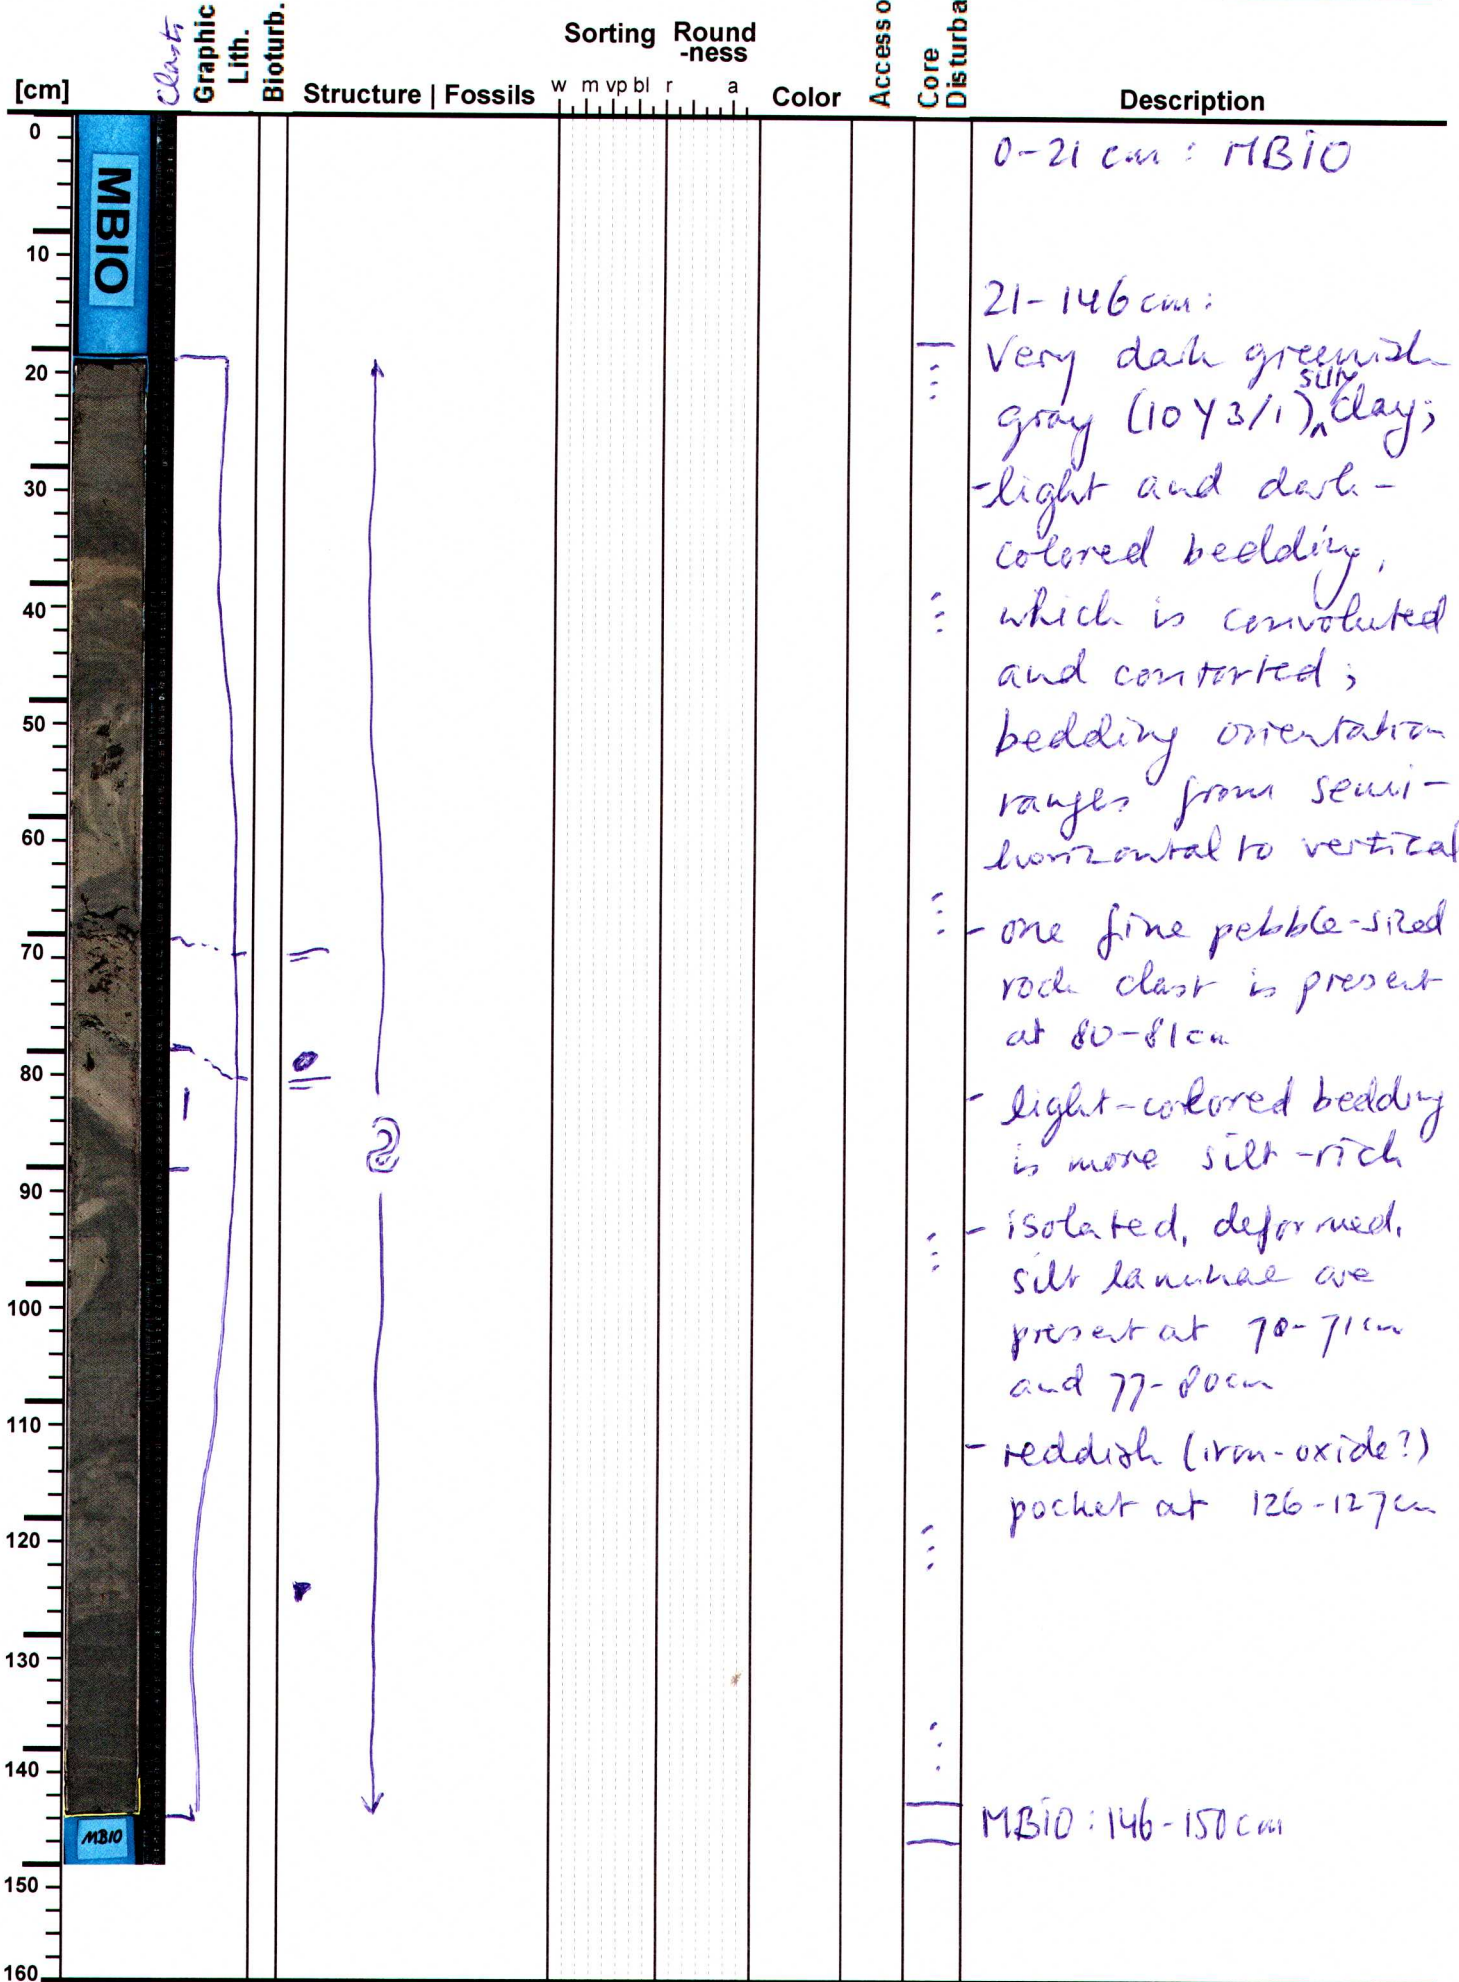 [cm]
Clasts
Graphic
Lith.
Bioturb.
Structure | Fossils
Sorting
w m vp bl
Round
-ness
r a
Color
Accesso
Core
Disturba
Description
0
10
20
30
40
50
60
70
80
90
100
110
120
130
140
150
160
MBIO
MBIO
0-21 cm: MBIO
21-146 cm:
Very dark greenish
gray (10Y3/1) silty clay;
- light and dark-
colored bedding,
which is convoluted
and contorted;
bedding orientation
ranges from semi-
horizontal to vertical
- one fine pebble-sized
rock clast is present
at 80-81cm
- light-colored bedding
is more silt-rich
- isolated, deformed,
silt laminae are
present at 70-71cm
and 77-80cm
- reddish (iron-oxide?)
pocket at 126-127cm
MBIO: 146-150cm